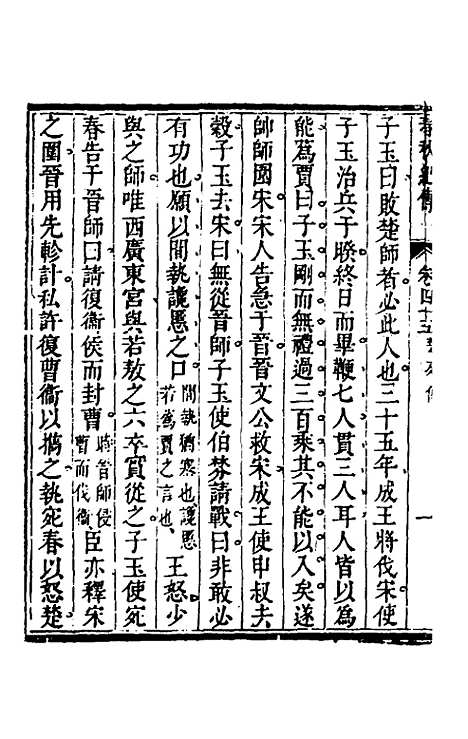 卷四十五
一
子玉曰敗楚師者必此人也三十五年成王將伐宋使
子玉治兵于睽終日而畢鞭七人貫三人耳人皆以為
能蔿賈曰子玉剛而無禮過三百乘其不能以入矣遂
帥師圍宋宋人告急于晉晉文公救宋成王使申叔去
穀子玉去宋曰無從晉師子玉使伯棼請戰曰非敢必
有功也願以間執讒慝之口間執猶塞也讒慝若蔿賈之言也王怒少
與之師唯西廣東宮與若敖之六卒實從之子玉使宛
春告于晉師曰請復衞侯而封曹時晉師侵曹而伐衞臣亦釋宋
之圍晉用先軫計私許復曹衞以攜之執宛春以怒楚